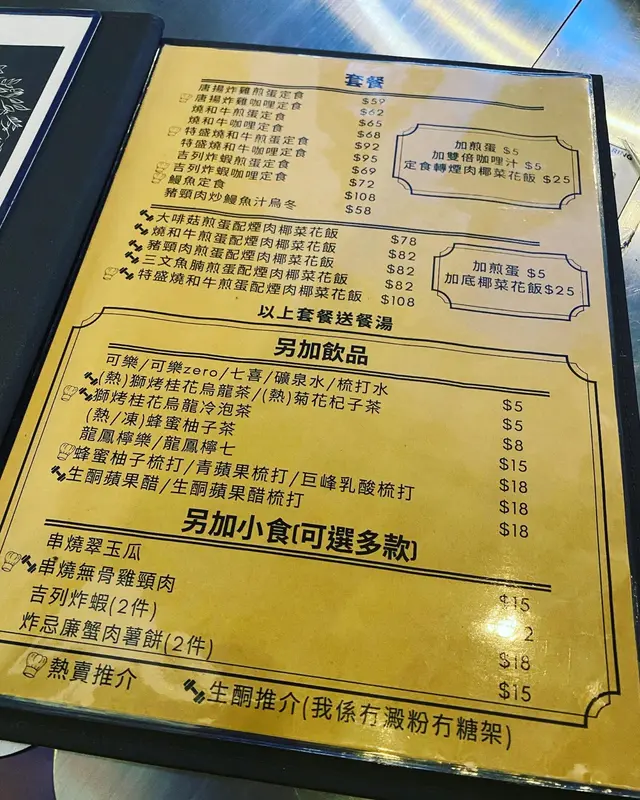 套餐
唐揚炸雞煎蛋定食 $59
唐揚炸雞咖哩定食 $62
燒和牛煎蛋定食 $65
燒和牛咖哩定食 $68
特盛燒和牛煎蛋定食 $92
特盛燒和牛咖哩定食 $95
吉列炸蝦煎蛋定食 $69
吉列炸蝦咖哩定食 $72
鰻魚定食 $108
豬頸肉炒鰻魚汁烏冬 $58
加煎蛋 $5
加雙倍咖哩汁 $5
定食轉煙肉椰菜花飯 $25
大啡菇煎蛋配煙肉椰菜花飯 $78
燒和牛煎蛋配煙肉椰菜花飯 $82
豬頸肉煎蛋配煙肉椰菜花飯 $82
三文魚腩煎蛋配煙肉椰菜花飯 $82
特盛燒和牛煎蛋配煙肉椰菜花飯 $108
加煎蛋 $5
加底椰菜花飯$25
以上套餐送餐湯
另加飲品
可樂/可樂zero/七喜/礦泉水/梳打水 $5
(熱)獅烤桂花烏龍茶/(熱)菊花杞子茶 $5
獅烤桂花烏龍冷泡茶 $8
(熱/凍)蜂蜜柚子茶 $15
龍鳳檸樂/龍鳳檸七 $18
蜂蜜柚子梳打/青蘋果梳打/巨峰乳酸梳打 $18
生酮蘋果醋/生酮蘋果醋梳打 $18
另加小食(可選多款)
串燒翠玉瓜 $15
串燒無骨雞頸肉 2
吉列炸蝦(2件) $18
炸忌廉蟹肉薯餅(2件) $15
熱賣推介
生酮推介(我係冇澱粉冇糖架)